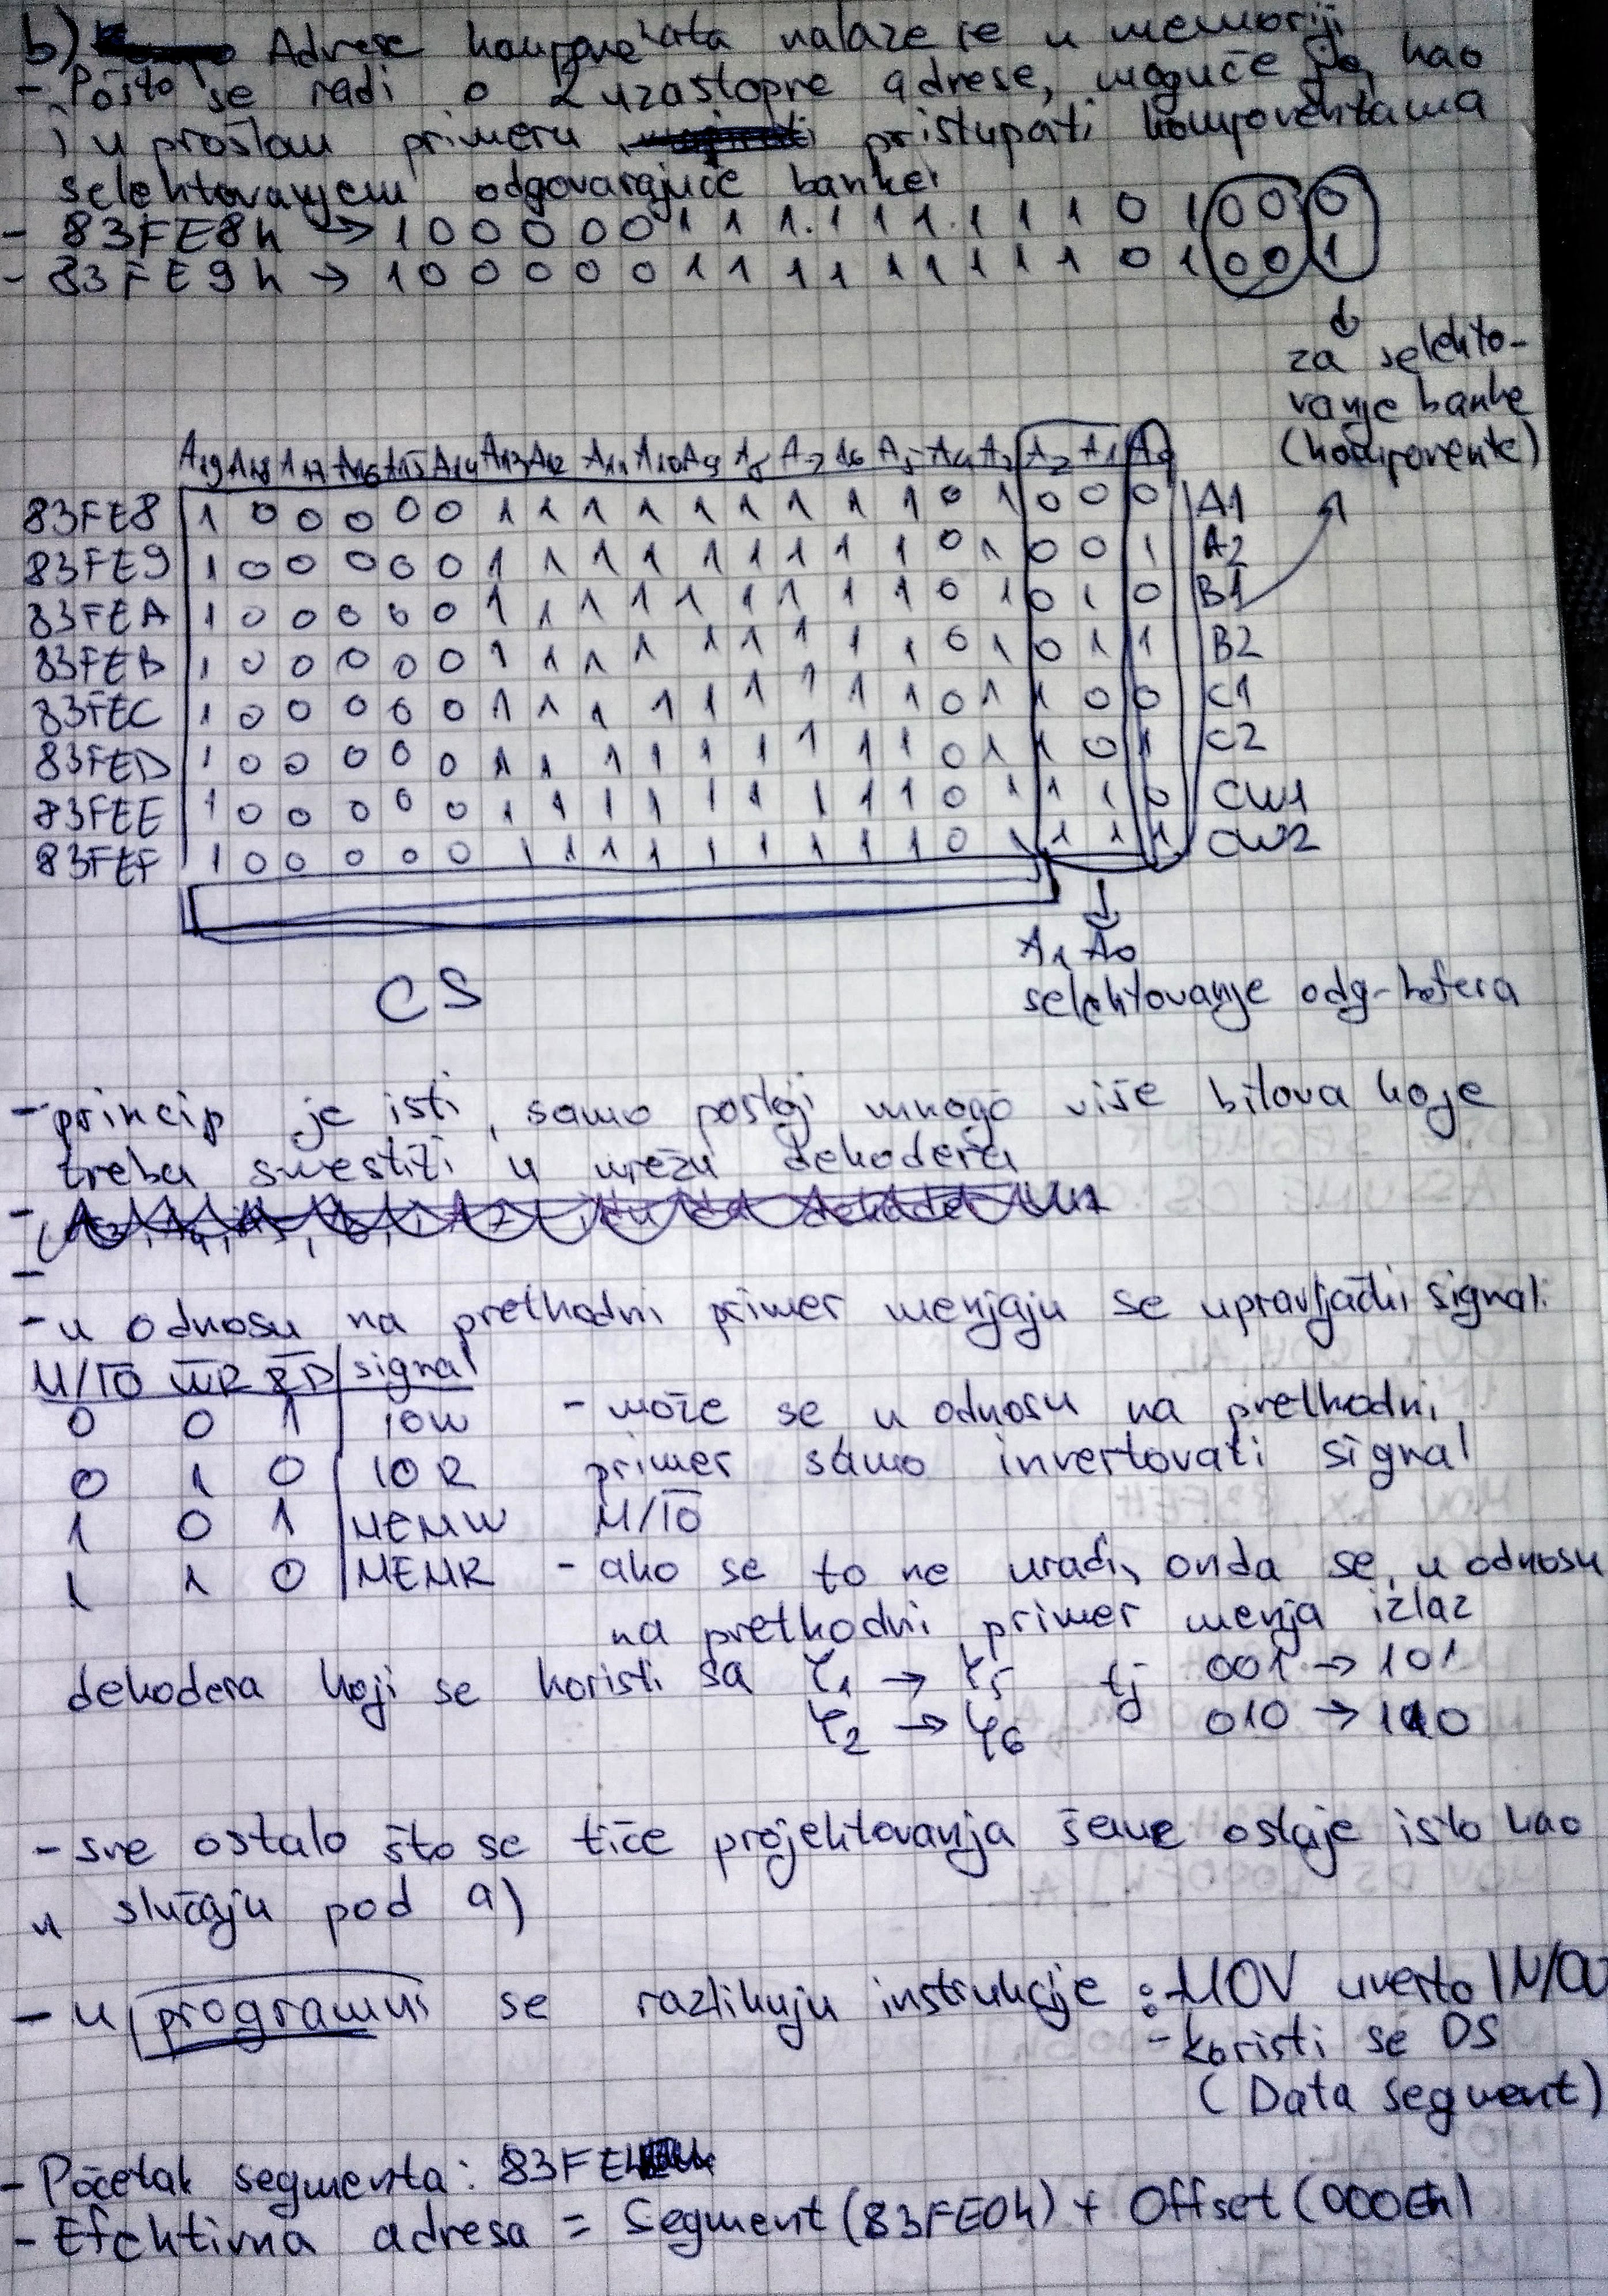 b) Adrese komponenata nalaze se u memoriji
- Pošto se radi o 2 uzastopne adrese, moguće je, kao
i u prošlom primeru pristupati komponentama
selektovanjem odgovarajuće banke
- 83FE8h → 1 0 0 0 0 0 1 1 1 1 1 1 1 1 1 0 1 0 0 0
- 83FE9h → 1 0 0 0 0 0 1 1 1 1 1 1 1 1 1 0 1 0 0 1
za selekto-
vanje banke
(komponente)
A19 A18 A17 A16 A15 A14 A13 A12 A11 A10 A9 A8 A7 A6 A5 A4 A3 A2 A1 A0
83FE8 1 0 0 0 0 0 1 1 1 1 1 1 1 1 1 0 1 0 0 0 A1
83FE9 1 0 0 0 0 0 1 1 1 1 1 1 1 1 1 0 1 0 0 1 A2
83FEA 1 0 0 0 0 0 1 1 1 1 1 1 1 1 1 0 1 0 1 0 B1
83FEB 1 0 0 0 0 0 1 1 1 1 1 1 1 1 1 0 1 0 1 1 B2
83FEC 1 0 0 0 0 0 1 1 1 1 1 1 1 1 1 0 1 1 0 0 C1
83FED 1 0 0 0 0 0 1 1 1 1 1 1 1 1 1 0 1 1 0 1 C2
83FEE 1 0 0 0 0 0 1 1 1 1 1 1 1 1 1 0 1 1 1 0 CW1
83FEF 1 0 0 0 0 0 1 1 1 1 1 1 1 1 1 0 1 1 1 1 CW2
CS
A1 A0
selektovanje odg. bafera
- princip je isti, samo postoji mnogo više bitova koje
treba smestiti u mrežu dekodera
- u odnosu na prethodni primer menjaju se upravljački signali
M/I̅O̅ W̅R̅ R̅D̅ signal
0 0 1 IOW
0 1 0 IOR
1 0 1 MEMW
1 1 0 MEMR
- može se u odnosu na prethodni
primer samo invertovati signal
M/I̅O̅
- ako se to ne uradi, onda se, u odnosu
na prethodni primer menja izlaz
dekodera koji se koristi sa Y1 → Y5 tj 001 → 101
Y2 → Y6 010 → 110
- sve ostalo što se tiče projektovanja šeme ostaje isto kao
u slučaju pod a)
- u programu se razlikuju instrukcije: - MOV umesto IN/OU
- koristi se DS
(Data segment)
- Početak segmenta: 83FEh
- Efektivna adresa = Segment (83FE0h) + Offset (000Eh)